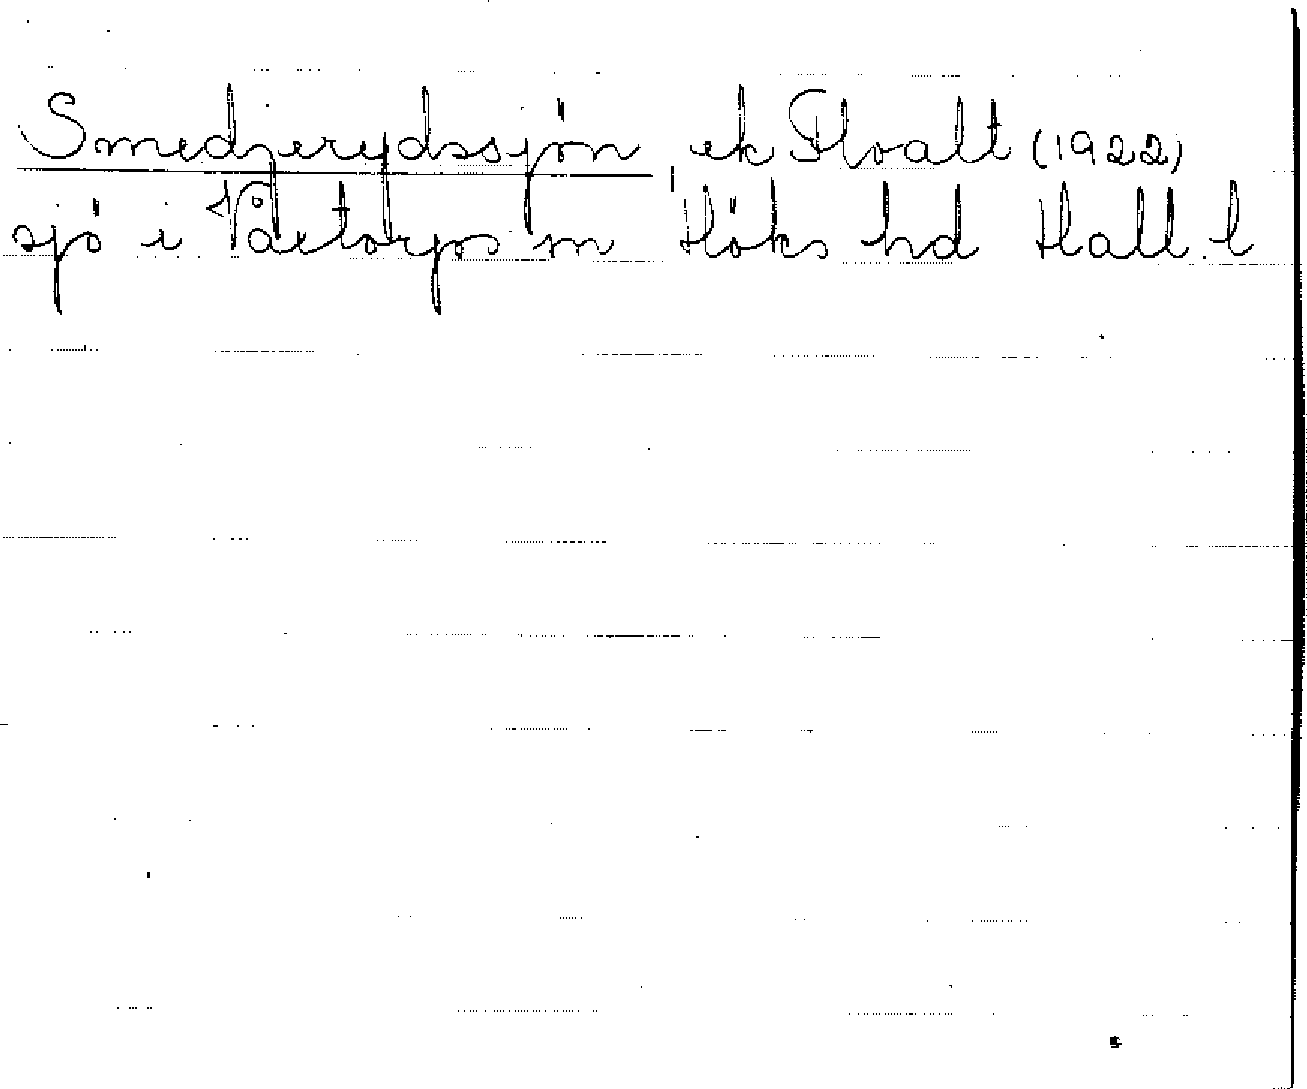 Smedjerydssjön, ek Floalt (1922)
sjö i Våxtorps sn Höks hd Hall. l